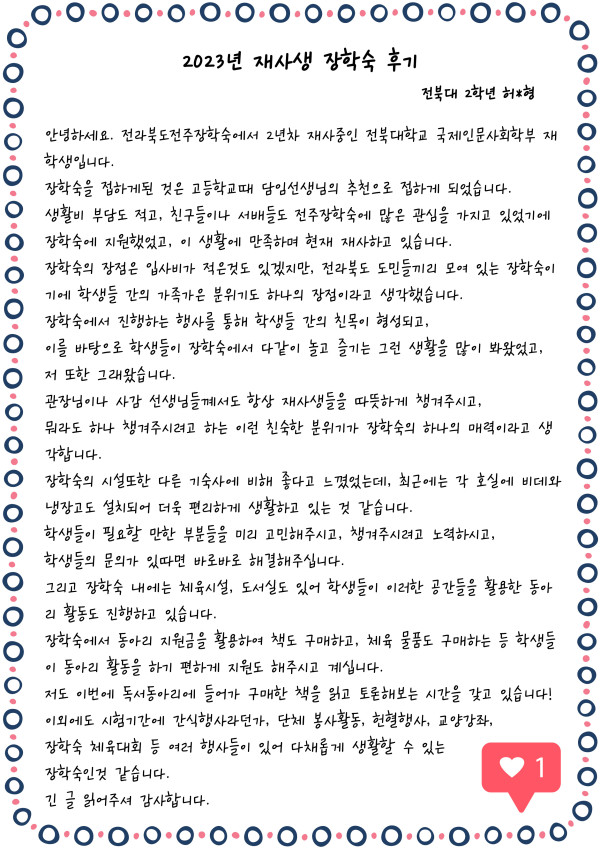 2023년 재사생 장학숙 후기
전북대 2학년 허*형
안녕하세요. 전라북도전주장학숙에서 2년차 재사중인 전북대학교 국제인문사회학부 재
학생입니다.
장학숙을 접하게된 것은 고등학교때 담임선생님의 추천으로 접하게 되었습니다.
생활비 부담도 적고, 친구들이나 서배들도 전주장학숙에 많은 관심을 가지고 있었기에
장학숙에 지원했었고, 이 생활에 만족하며 현재 재사하고 있습니다.
장학숙의 장점은 입사비가 적은것도 있겠지만, 전라북도 도민들끼리 모여 있는 장학숙이
기에 학생들 간의 가족가은 분위기도 하나의 장점이라고 생각했습니다.
장학숙에서 진행하는 행사를 통해 학생들 간의 친목이 형성되고,
이를 바탕으로 학생들이 장학숙에서 다같이 놀고 즐기는 그런 생활을 많이 봐왔었고,
저 또한 그래왔습니다.
관장님이나 사감 선생님들께서도 항상 재사생들을 따뜻하게 챙겨주시고,
뭐라도 하나 챙겨주시려고 하는 이런 친숙한 분위기가 장학숙의 하나의 매력이라고 생
각합니다.
장학숙의 시설또한 다른 기숙사에 비해 좋다고 느꼈었는데, 최근에는 각 호실에 비데와
냉장고도 설치되어 더욱 편리하게 생활하고 있는 것 같습니다.
학생들이 필요할 만한 부분들을 미리 고민해주시고, 챙겨주시려고 노력하시고,
학생들의 문의가 있따면 바로바로 해결해주십니다.
그리고 장학숙 내에는 체육시설, 도서실도 있어 학생들이 이러한 공간들을 활용한 동아
리 활동도 진행하고 있습니다.
장학숙에서 동아리 지원금을 활용하여 책도 구매하고, 체육 물품도 구매하는 등 학생들
이 동아리 활동을 하기 편하게 지원도 해주시고 계십니다.
저도 이번에 독서동아리에 들어가 구매한 책을 읽고 토론해보는 시간을 갖고 있습니다!
이외에도 시험기간에 간식행사라던가, 단체 봉사활동, 헌혈행사, 교양강좌,
장학숙 체육대회 등 여러 행사들이 있어 다채롭게 생활할 수 있는
장학숙인것 같습니다.
긴 글 읽어주셔 감사합니다.
1